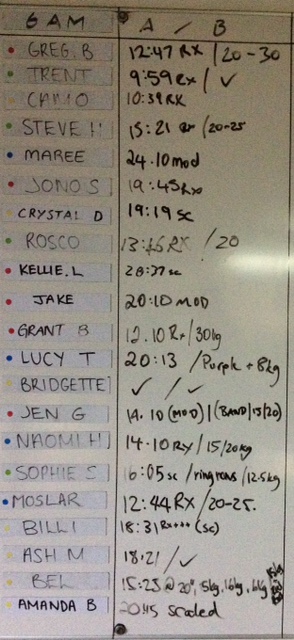 6 AM A / B
GREG.B 12:47 RX /20-30
TRENT 9:59 Rx / ✓
CAMO 10:39 RX
STEVE H 15:21 /20-25
MAREE 24.10 mod
JONO S 19:45 Rx
CRYSTAL D 19:19 sc
ROSCO RX / 20
KELLIE.L 28:37 sc
JAKE 20:10 MOD
GRANT B 12.10 Rx/30kg
LUCY T 20:13 /Purple + 8kg
BRIDGETTE ✓ / ✓
JEN G 14.10 (MOD) | (BAND/15/20)
NAOMI H 14.10 RX/15/20kg
SOPHIE S 16:05 sc /ring rows /12.5kg
MOSLAR 12:44 RX /20-25.
BILLI 18:31 Rx+++ (sc)
ASH M 18.21 / ✓
BEL 15:23 @ 20", 5kg, 16kg,
AMANDA B scaled